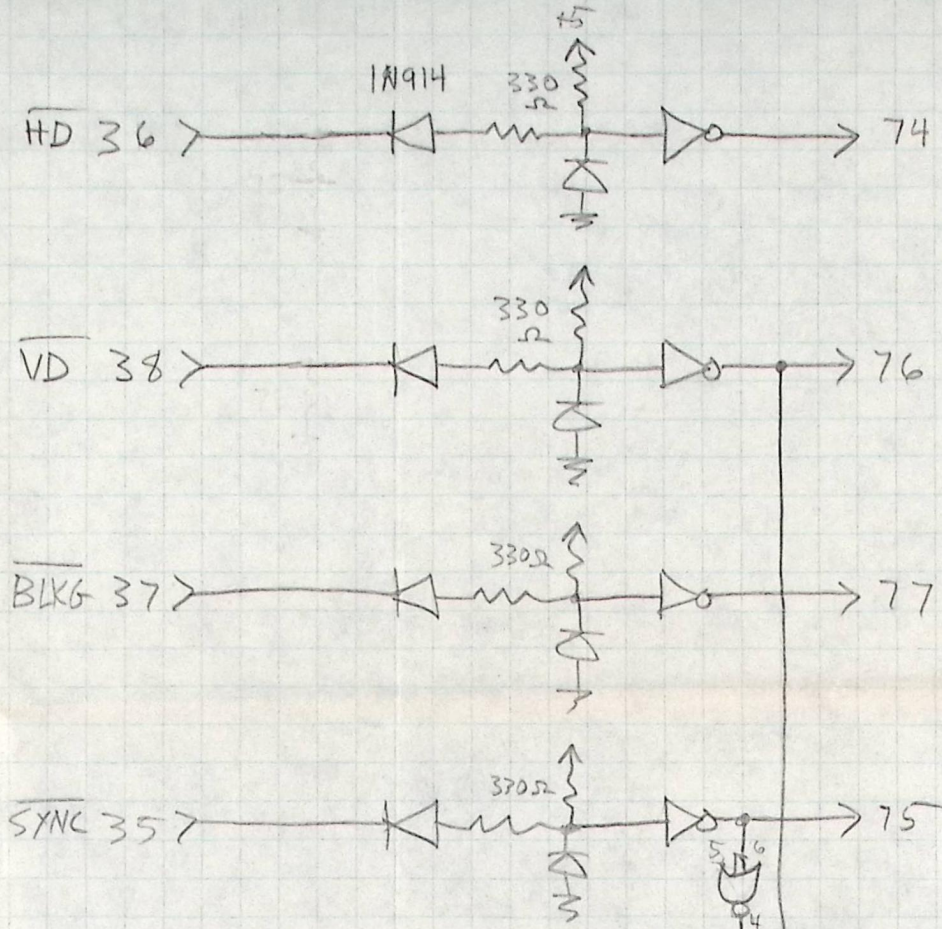 +5
1N914
330
Ω
HD 36
74
330
Ω
VD 38
76
330Ω
BLKG 37
77
330Ω
SYNC 35
75
5 6
4